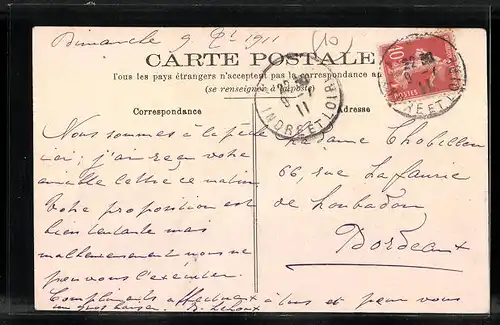 Dimanche 9 1911
(10)
CARTE POSTALE
Tous les pays étrangers n'acceptent pas la correspondance au
(se renseigner à la poste)
Correspondance
Adresse
22 30
9 -
11
INDRE ET LOIRE
10
POSTES
INDRE ET LOIRE
Nous sommes à la
ici; j'ai reçu votre
aimable lettre ce matin.
Votre proposition est
bien tentante mais
malheureusement nous ne
pouvons l'exécuter.
Compliments affectueux à tous et pour vous
un gros baiser.
Madame Chobillon
66, rue La faurie
de Monbadon
Bordeaux